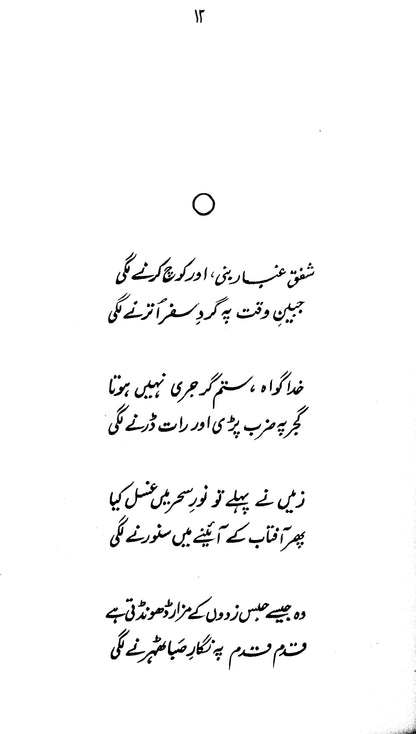 ۱۲
شفق غبار بنی، اور کوچ کرنے لگی
جبینِ وقت پہ گردِ سفر اُترنے لگی
خدا گواہ، ستم گر جری نہیں ہوتا
گجر پہ ضرب پڑی اور رات ڈرنے لگی
زمیں نے پہلے تو نورِ سحر میں غسل کیا
پھر آفتاب کے آئینے میں سنورنے لگی
وہ جیسے حبس زدوں کے مزار ڈھونڈتی ہے
قدم قدم پہ نگارِ صبا ٹھہرنے لگی